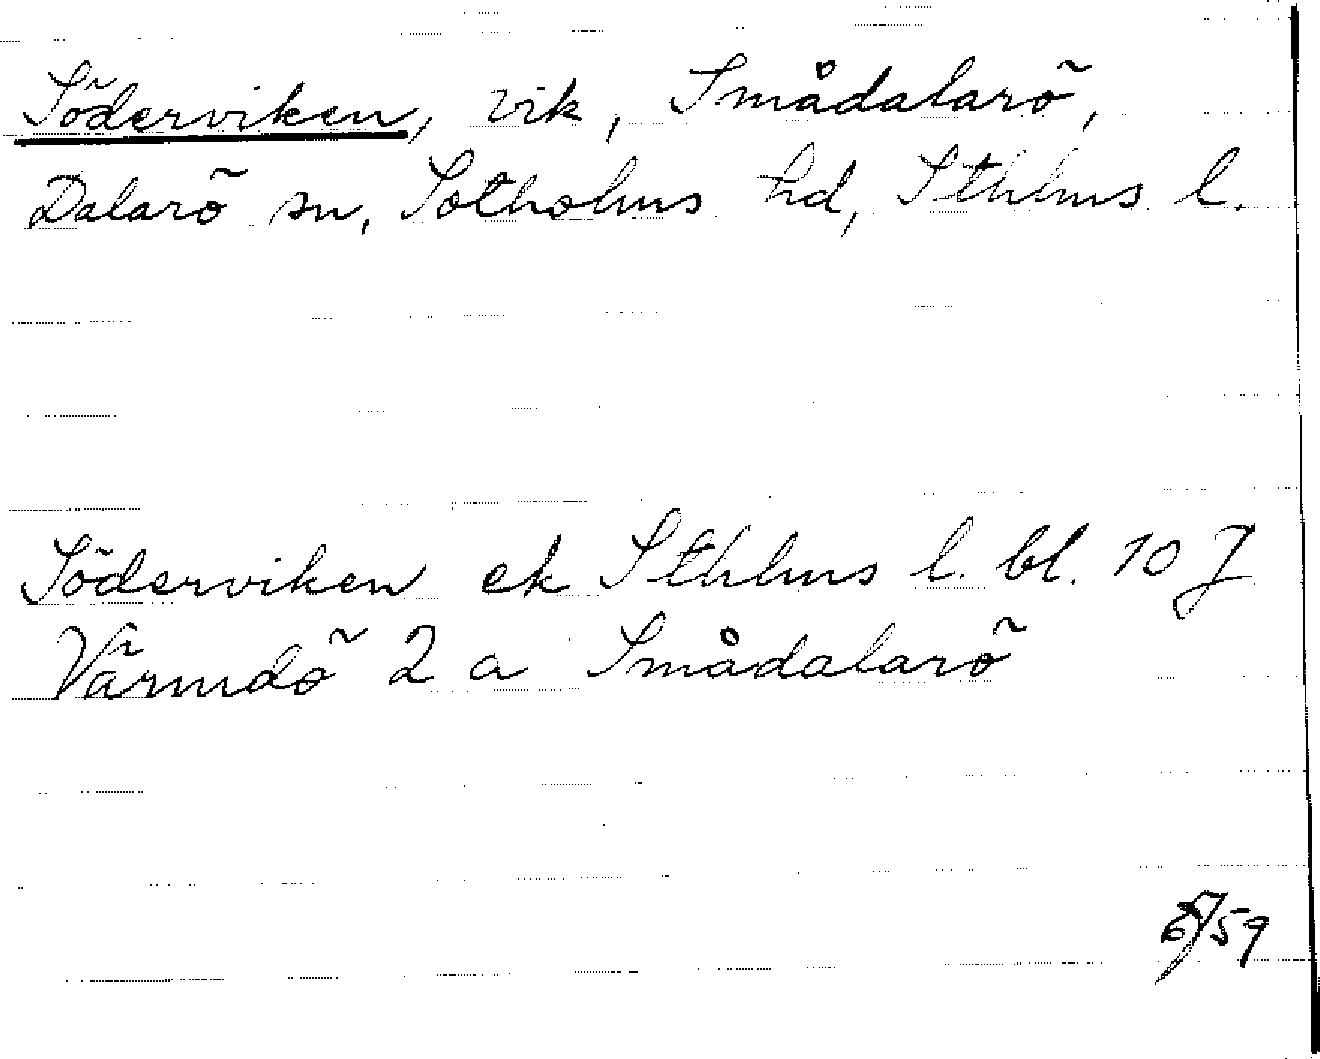 Söderviken, vik, Smådalarö,
Dalarö sn, Sotholms hd, Sthlms l.
Söderviken ek Sthlms l. bl. 10 J
Värmdö 2 a Smådalarö